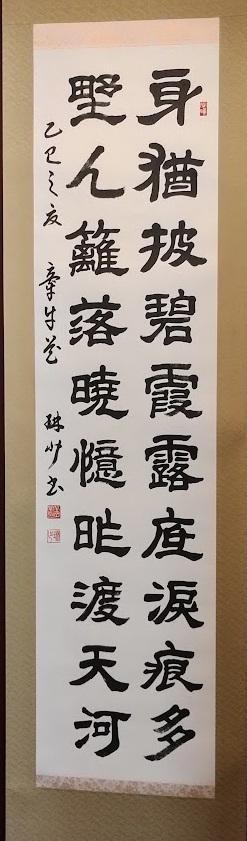 身猶披碧霞露底淚痕多
野人籬落曉憶昨渡天河
乙巳之夏 牽牛花 琳 書